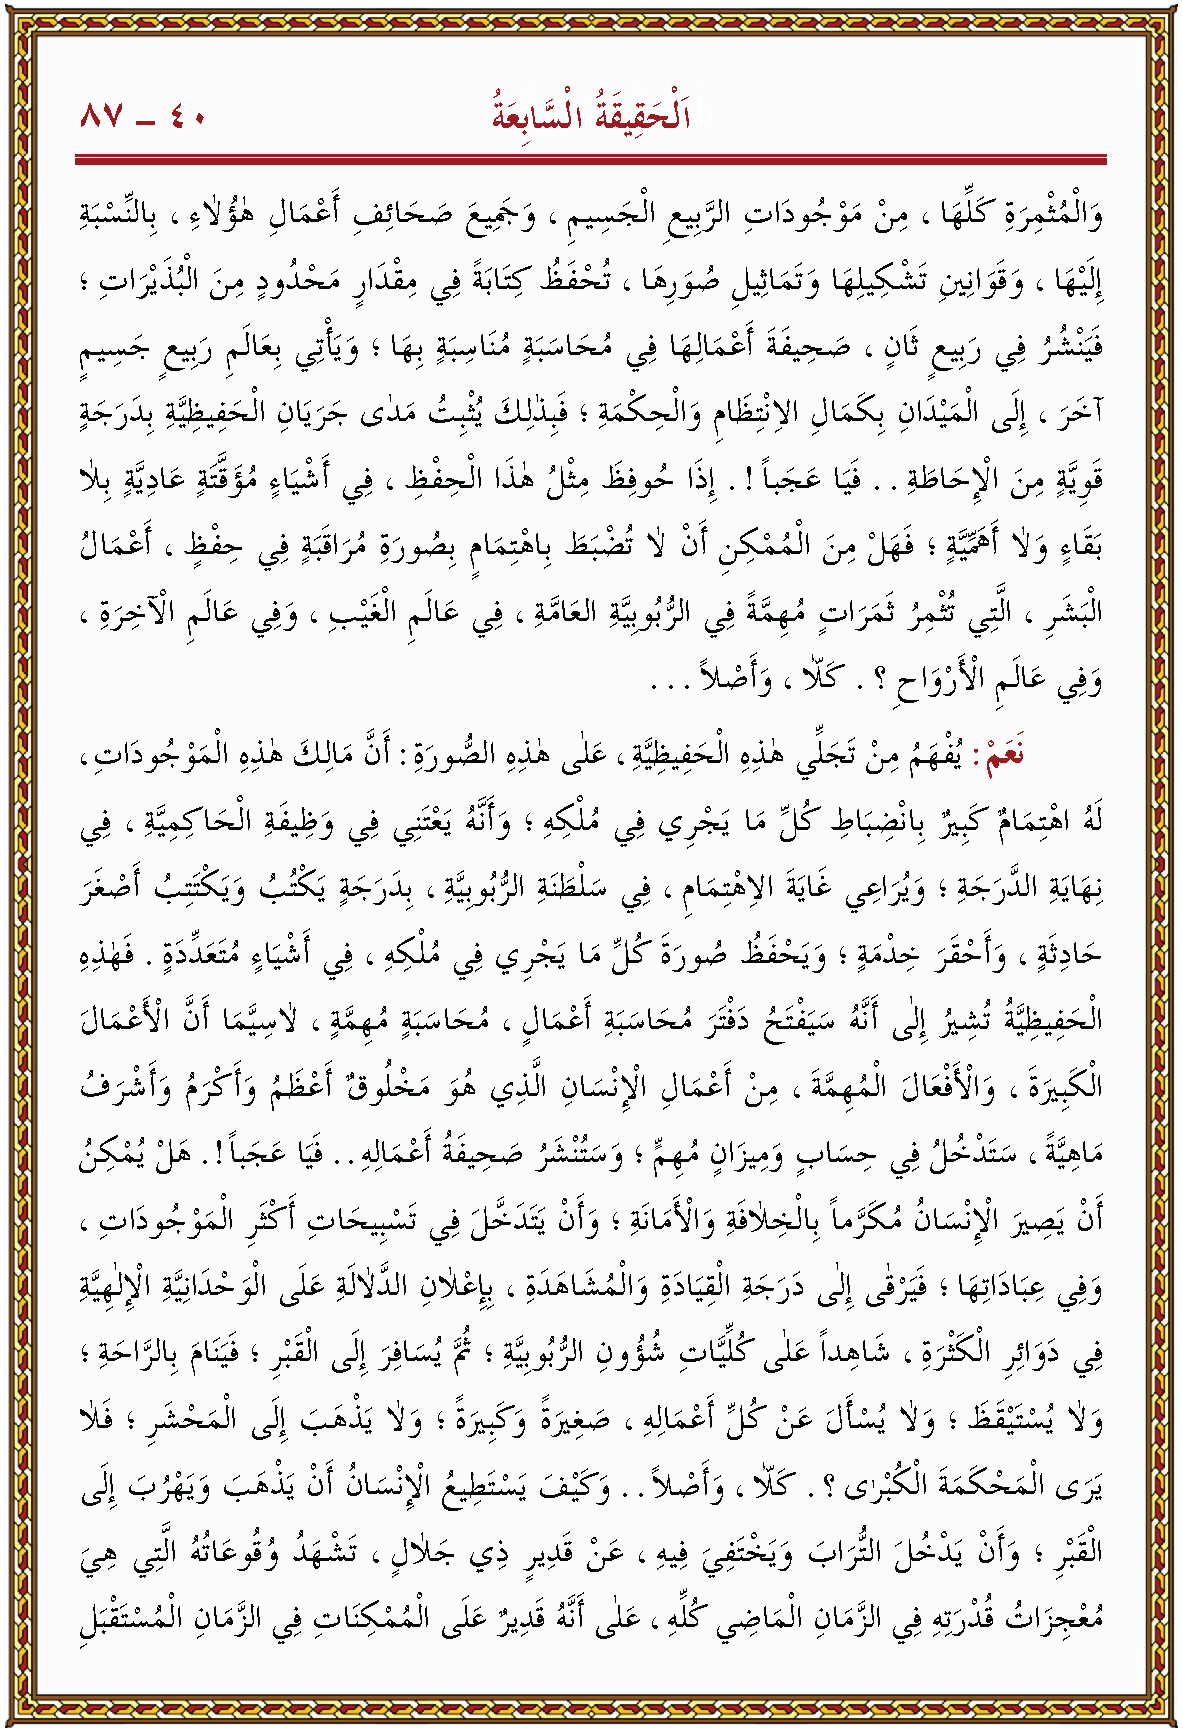 اَلْحَقِيقَةُ السَّابِعَةُ
٤٠ – ٨٧
وَالْمُثْمِرَةِ كَلِّهَا ، مِنْ مَوْجُودَاتِ الرَّبِيعِ الْجَسِيمِ ، وَجَمِيعَ صَحَائِفِ أَعْمَالِ هٰؤُلَاءِ ، بِالنِّسْبَةِ
إِلَيْهَا ، وَقَوَانِينِ تَشْكِيلِهَا وَتَمَاثِيلِ صُوَرِهَا ، تُحْفَظُ كِتَابَةً فِي مِقْدَارٍ مَحْدُودٍ مِنَ الْبُذَيْرَاتِ ؛
فَيَنْشُرُ فِي رَبِيعٍ ثَانٍ ، صَحِيفَةَ أَعْمَالِهَا فِي مُحَاسَبَةٍ مُنَاسِبَةٍ بِهَا ؛ وَيَأْتِي بِعَالَمِ رَبِيعٍ جَسِيمٍ
آخَرَ ، إِلَى الْمَيْدَانِ بِكَمَالِ الْاِنْتِظَامِ وَالْحِكْمَةِ ؛ فَبِذٰلِكَ يُثْبِتُ مَدٰى جَرَيَانِ الْحَفِيظِيَّةِ بِدَرَجَةٍ
قَوِيَّةٍ مِنَ الْإِحَاطَةِ . . فَيَا عَجَباً ! . إِذَا حُوفِظَ مِثْلُ هٰذَا الْحِفْظِ ، فِي أَشْيَاءٍ مُؤَقَّتَةٍ عَادِيَّةٍ بِلَا
بَقَاءٍ وَلَا أَهَمِّيَّةٍ ؛ فَهَلْ مِنَ الْمُمْكِنِ أَنْ لَا تُضْبَطَ بِاهْتِمَامٍ بِصُورَةِ مُرَاقَبَةٍ فِي حِفْظٍ ، أَعْمَالُ
الْبَشَرِ ، الَّتِي تُثْمِرُ ثَمَرَاتٍ مُهِمَّةً فِي الرُّبُوبِيَّةِ الْعَامَّةِ ، فِي عَالَمِ الْغَيْبِ ، وَفِي عَالَمِ الْآخِرَةِ ،
وَفِي عَالَمِ الْأَرْوَاحِ ؟ . كَلَّا ، وَأَصْلاً . . .
نَعَمْ : يُفْهَمُ مِنْ تَجَلِّي هٰذِهِ الْحَفِيظِيَّةِ ، عَلٰى هٰذِهِ الصُّورَةِ : أَنَّ مَالِكَ هٰذِهِ الْمَوْجُودَاتِ ،
لَهُ اهْتِمَامٌ كَبِيرٌ بِانْضِبَاطِ كُلِّ مَا يَجْرِي فِي مُلْكِهِ ؛ وَأَنَّهُ يَعْتَنِي فِي وَظِيفَةِ الْحَاكِمِيَّةِ ، فِي
نِهَايَةِ الدَّرَجَةِ ؛ وَيُرَاعِي غَايَةَ الْاِهْتِمَامِ ، فِي سَلْطَنَةِ الرُّبُوبِيَّةِ ، بِدَرَجَةٍ يَكْتُبُ وَيَكْتَتِبُ أَصْغَرَ
حَادِثَةٍ ، وَأَحْقَرَ خِدْمَةٍ ؛ وَيَحْفَظُ صُورَةَ كُلِّ مَا يَجْرِي فِي مُلْكِهِ ، فِي أَشْيَاءٍ مُتَعَدِّدَةٍ . فَهٰذِهِ
الْحَفِيظِيَّةُ تُشِيرُ إِلٰى أَنَّهُ سَيَفْتَحُ دَفْتَرَ مُحَاسَبَةِ أَعْمَالٍ ، مُحَاسَبَةٍ مُهِمَّةٍ ، لَاسِيَّمَا أَنَّ الْأَعْمَالَ
الْكَبِيرَةَ ، وَالْأَفْعَالَ الْمُهِمَّةَ ، مِنْ أَعْمَالِ الْإِنْسَانِ الَّذِي هُوَ مَخْلُوقٌ أَعْظَمُ وَأَكْرَمُ وَأَشْرَفُ
مَاهِيَّةً ، سَتَدْخُلُ فِي حِسَابٍ وَمِيزَانٍ مُهِمٍّ ؛ وَسَتُنْشَرُ صَحِيفَةُ أَعْمَالِهِ . . فَيَا عَجَباً ! . هَلْ يُمْكِنُ
أَنْ يَصِيرَ الْإِنْسَانُ مُكَرَّماً بِالْخِلَافَةِ وَالْأَمَانَةِ ؛ وَأَنْ يَتَدَخَّلَ فِي تَسْبِيحَاتِ أَكْثَرِ الْمَوْجُودَاتِ ،
وَفِي عِبَادَاتِهَا ؛ فَيَرْقٰى إِلٰى دَرَجَةِ الْقِيَادَةِ وَالْمُشَاهَدَةِ ، بِإِعْلَانِ الدَّلَالَةِ عَلَى الْوَحْدَانِيَّةِ الْإِلٰهِيَّةِ
فِي دَوَائِرِ الْكَثْرَةِ ، شَاهِداً عَلٰى كُلِّيَّاتِ شُؤُونِ الرُّبُوبِيَّةِ ؛ ثُمَّ يُسَافِرَ إِلَى الْقَبْرِ ؛ فَيَنَامَ بِالرَّاحَةِ ؛
وَلَا يُسْتَيْقَظَ ؛ وَلَا يُسْأَلَ عَنْ كُلِّ أَعْمَالِهِ ، صَغِيرَةً وَكَبِيرَةً ؛ وَلَا يَذْهَبَ إِلَى الْمَحْشَرِ ؛ فَلَا
يَرَى الْمَحْكَمَةَ الْكُبْرٰى ؟ . كَلَّا ، وَأَصْلاً . . وَكَيْفَ يَسْتَطِيعُ الْإِنْسَانُ أَنْ يَذْهَبَ وَيَهْرُبَ إِلَى
الْقَبْرِ ؛ وَأَنْ يَدْخُلَ التُّرَابَ وَيَخْتَفِيَ فِيهِ ، عَنْ قَدِيرٍ ذِي جَلَالٍ ، تَشْهَدُ وُقُوعَاتُهُ الَّتِي هِيَ
مُعْجِزَاتُ قُدْرَتِهِ فِي الزَّمَانِ الْمَاضِي كُلِّهِ ، عَلٰى أَنَّهُ قَدِيرٌ عَلَى الْمُمْكِنَاتِ فِي الزَّمَانِ الْمُسْتَقْبَلِ